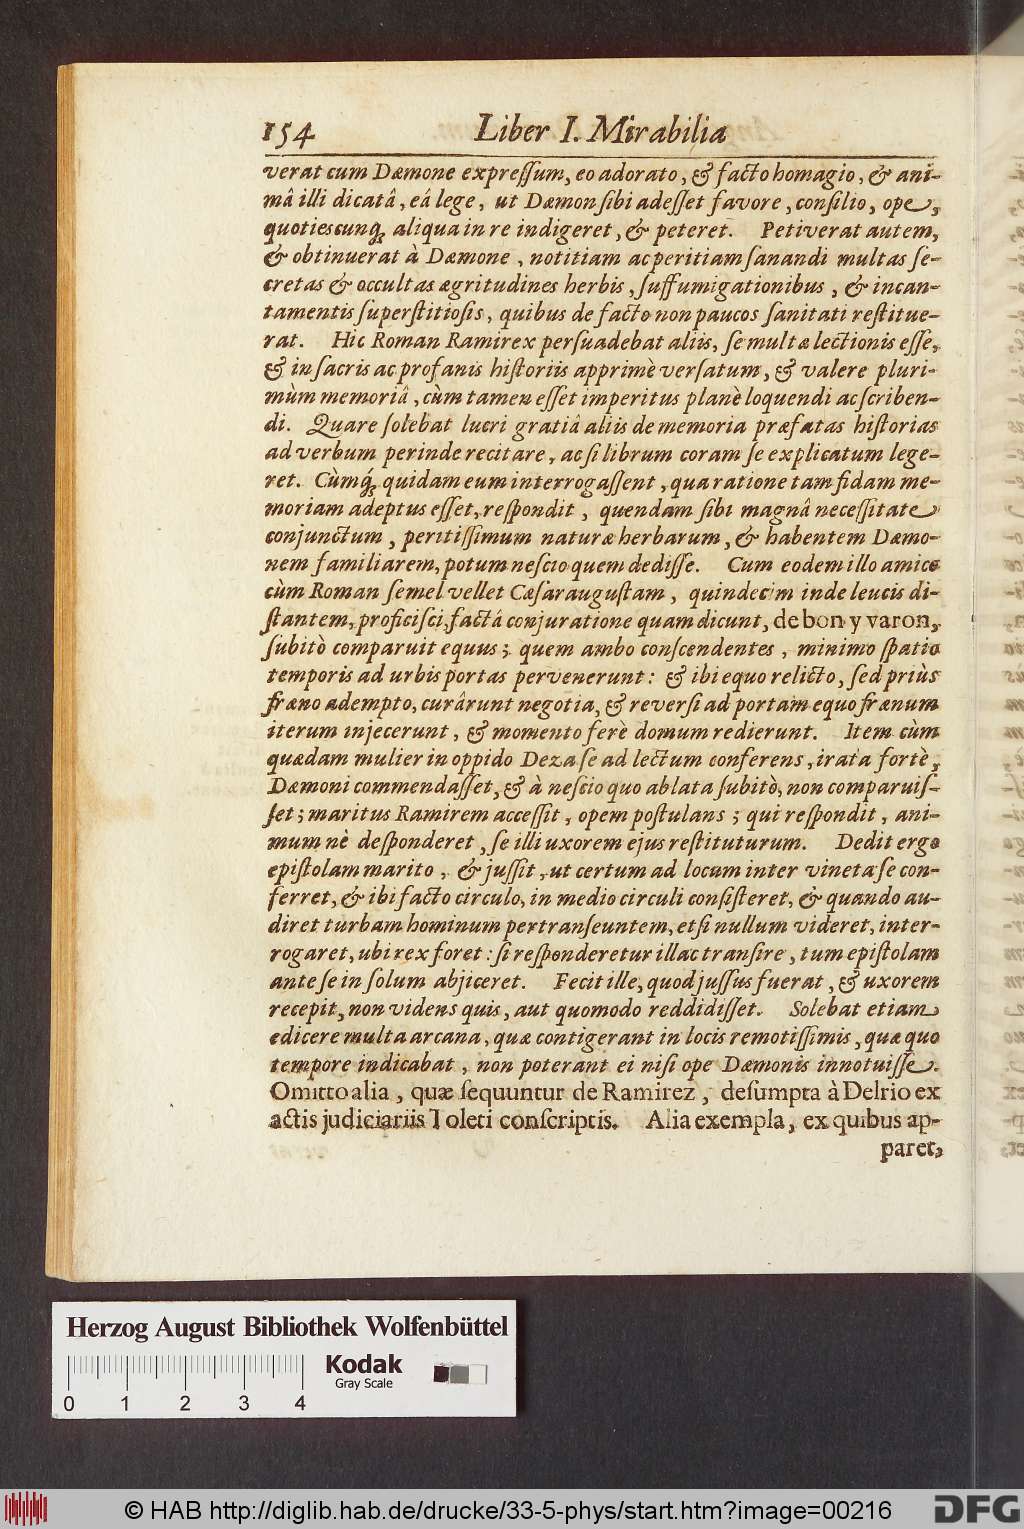 154 Liber I. Mirabilia
verat cum Dæmone expreſſum, eo adorato, & facto homagio, & ani-
mâ illi dicatâ, eá lege, ut Dæmon ſibi adeſſet favore, conſilio, ope,
quotiescunq; aliqua in re indigeret, & peteret. Petiverat autem,
& obtinuerat à Dæmone, notitiam ac peritiam ſanandi multas ſe-
cretas & occultas ægritudines herbis, ſuffumigationibus, & incan-
tamentis ſuperſtitioſis, quibus de facto non paucos ſanitati reſtitue-
rat. Hic Roman Ramirex perſuadebat aliis, ſe multæ lectionis eſſe,
& in ſacris ac profanis hiſtoriis apprimè verſatum, & valere pluri-
mùm memoriâ, cùm tamen eſſet imperitus planè loquendi ac ſcriben-
di. Quare ſolebat lucri gratiâ aliis de memoria præfatas hiſtorias
ad verbum perinde recitare, ac ſi librum coram ſe explicatum lege-
ret. Cùmq́; quidam eum interrogaſſent, qua ratione tam fidam me-
moriam adeptus eſſet, reſpondit, quendam ſibi magnâ neceſſitate
conjunctum, peritiſſimum naturæ herbarum, & habentem Dæmo-
nem familiarem, potum neſcio quem dediſſe. Cum eodem illo amico
cùm Roman ſemel vellet Cæſarauguſtam, quindecim inde leucis di-
ſtantem, proficiſci, factá conjuratione quam dicunt, de bon y varon,
ſubitò comparuit equus; quem ambo conſcendentes, minimo ſpatio
temporis ad urbis portas pervenerunt: & ibi equo relicto, ſed priùs
fræno adempto, curârunt negotia, & reverſi ad portam equo frænum
iterum injecerunt, & momento ferè domum redierunt. Item cùm
quædam mulier in oppido Deza ſe ad lectum conferens, irata fortè,
Dæmoni commendaſſet, & à neſcio quo ablata ſubitò, non comparuiſ-
ſet; maritus Ramirem acceſſit, opem poſtulans; qui reſpondit, ani-
mum nè deſponderet, ſe illi uxorem ejus reſtituturum. Dedit ergo
epiſtolam marito, & juſſit, ut certum ad locum inter vineta ſe con-
ferret, & ibi facto circulo, in medio circuli conſiſteret, & quando au-
diret turbam hominum pertranſeuntem, etſi nullum videret, inter-
rogaret, ubi rex foret: ſi reſponderetur illac tranſire, tum epiſtolam
ante ſe in ſolum abjiceret. Fecit ille, quod juſſus fuerat, & uxorem
recepit, non videns quis, aut quomodo reddidiſſet. Solebat etiam
edicere multa arcana, quæ contigerant in locis remotiſſimis, quæ quo
tempore indicabat, non poterant ei niſi ope Dæmonis innotuiſſe.
Omitto alia, quæ ſequuntur de Ramirez, deſumpta à Delrio ex
actis judiciariis Toleti conſcriptis. Alia exempla, ex quibus ap-
paret,
Herzog August Bibliothek Wolfenbüttel
Kodak
Gray Scale
0 1 2 3 4
© HAB http://diglib.hab.de/drucke/33-5-phys/start.htm?image=00216
DFG